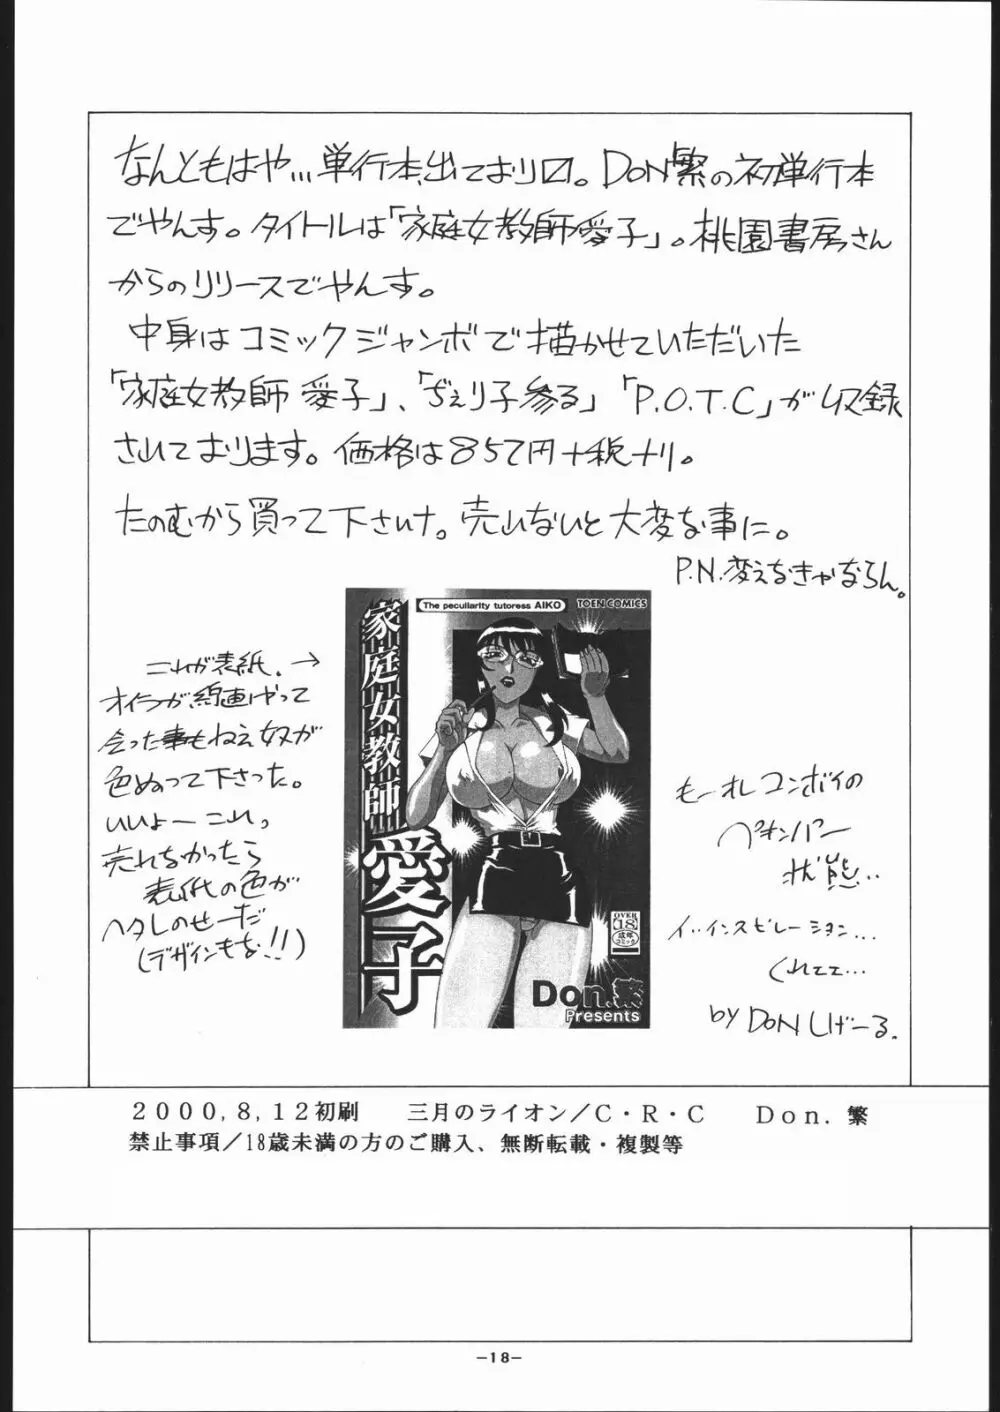 なんともはや…単行本出ており〼。DON繁の初単行本
でやんす。タイトルは「家庭女教師愛子」。桃園書房さん
からのリリースでやんす。
中身はコミックジャンボで描かせていただいた
「家庭女教師 愛子」、「ぢぇり子参る」「P.O.T.C」が収録
されております。価格は857円+税ナリ。
たのむから買って下さいナ。売れないと大変な事に。
P.N.変えなきゃならん。
これが表紙。→
オイラが線画はやって
会った事もねえ奴が
色ぬって下さった。
いいよーこれっ
売れなかったら
表紙の色が
ヘタレのせーだ
(デザインもな!!)
The peculiarity tutoress AIKO
TOEN COMICS
家庭女教師
愛子
OVER
18
成年
コミック
Don.繁
Presents
もーオレコンボイの
ペキンパー
状態…
イ…インスピレーション…
くれェェ…
by DONしげーる.
2000,8,12初刷 三月のライオン/C・R・C Don. 繁
禁止事項/18歳未満の方のご購入、無断転載・複製等
-18-